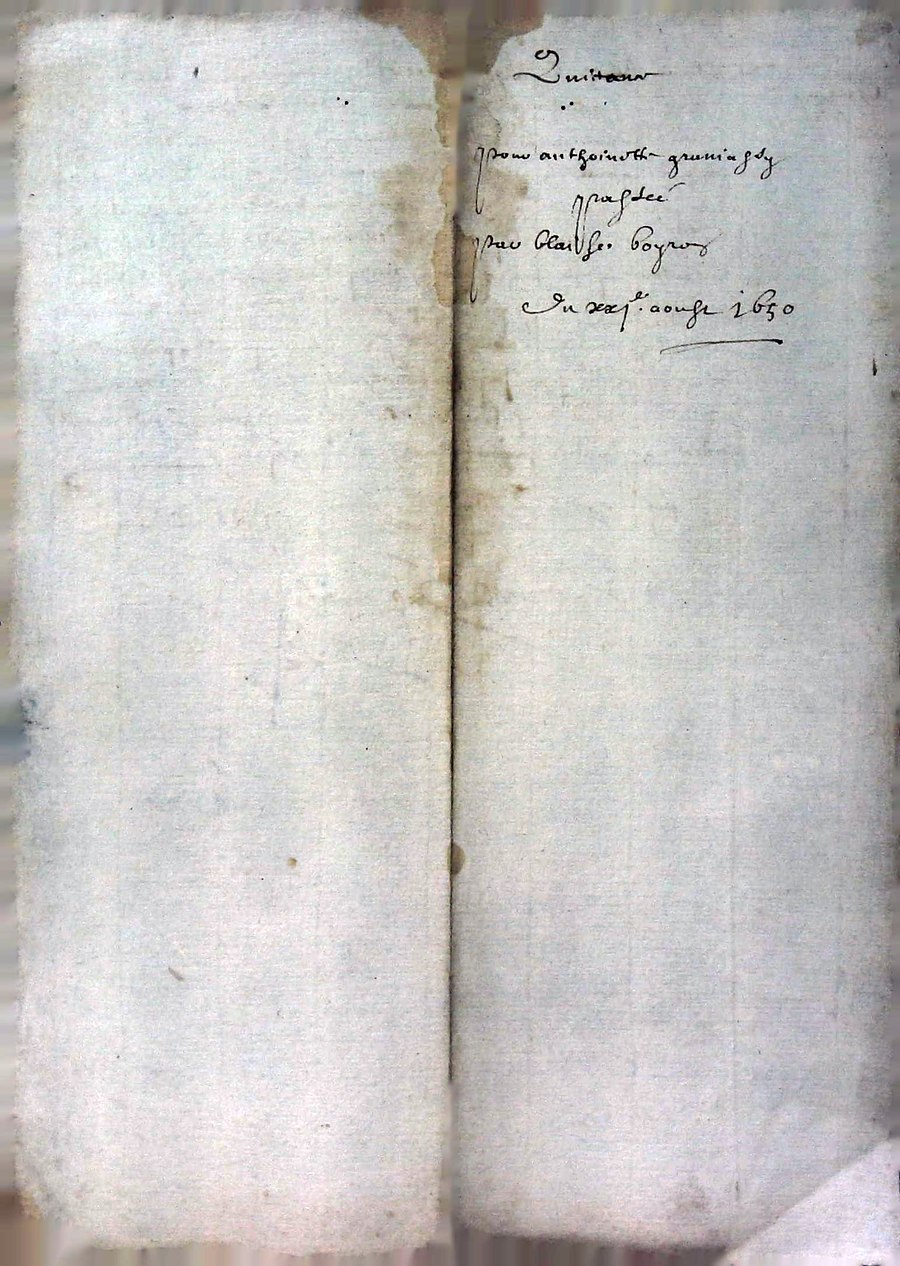 Quitance
pour anthoinette
passee
par blaise boyros
Du xxje. aoust 1650